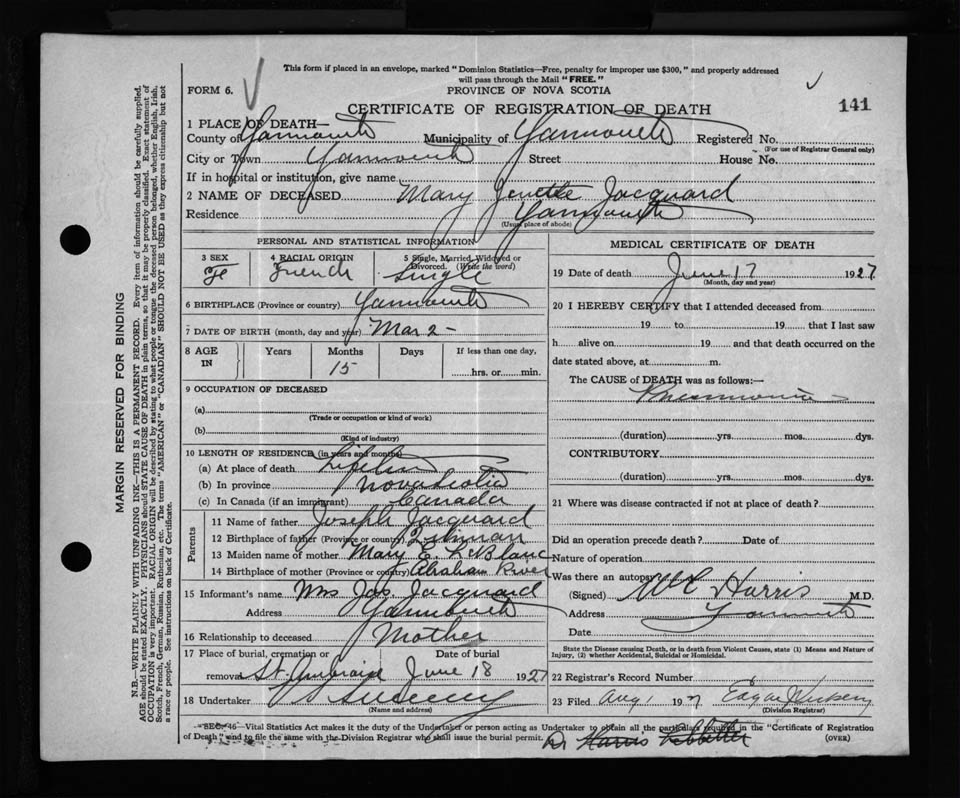 This form if placed in an envelope, marked "Dominion Statistics—Free, penalty for improper use $300," and properly addressed
will pass through the Mail "FREE."
FORM 6.
PROVINCE OF NOVA SCOTIA
CERTIFICATE OF REGISTRATION OF DEATH
141
1 PLACE OF DEATH—
County of Yarmouth Municipality of Yarmouth Registered No.
(For use of Registrar General only)
City or Town Yarmouth Street House No.
If in hospital or institution, give name
2 NAME OF DECEASED Mary Jacquard
Residence Yarmouth
(Usual place of abode)
PERSONAL AND STATISTICAL INFORMATION
3 SEX 4 RACIAL ORIGIN 5 Single, Married, Widowed or Divorced. (Write the word)
Fe French Single
6 BIRTHPLACE (Province or country) Yarmouth
7 DATE OF BIRTH (month, day and year) Mar 2 -
8 AGE IN Years Months Days If less than one day,
15 hrs. or min.
9 OCCUPATION OF DECEASED
(a)
(Trade or occupation or kind of work)
(b)
(Kind of industry)
10 LENGTH OF RESIDENCE (in years and months)
(a) At place of death Lifetime
(b) In province Nova Scotia
(c) In Canada (if an immigrant) Canada
Parents
11 Name of father Joseph Jacquard
12 Birthplace of father (Province or country)
13 Maiden name of mother Mary E. LeBlanc
14 Birthplace of mother (Province or country) Abraham River
15 Informant's name Mrs Jos Jacquard
Address Yarmouth
16 Relationship to deceased Mother
17 Place of burial, cremation or removal Date of burial
St. June 18 1927
18 Undertaker
(Name and address)
MEDICAL CERTIFICATE OF DEATH
19 Date of death June 17 1927
(Month, day and year)
20 I HEREBY CERTIFY that I attended deceased from
19 to 19 that I last saw
h alive on 19 and that death occurred on the
date stated above, at m.
The CAUSE of DEATH was as follows:—
Pneumonia -
(duration) yrs. mos. dys.
CONTRIBUTORY
(duration) yrs. mos. dys.
21 Where was disease contracted if not at place of death?
Did an operation precede death? Date of
Nature of operation
Was there an autopsy
(Signed) Harris M.D.
Address Yarmouth
Date
State the Disease causing Death, or in death from Violent Causes, state (1) Means and Nature of
Injury, (2) whether Accidental, Suicidal or Homicidal.
22 Registrar's Record Number
23 Filed Aug 1 1927 Edgar
(Division Registrar)
SEC. 46 Vital Statistics Act makes it the duty of the Undertaker or person acting as Undertaker to obtain all the particulars required in the "Certificate of Registration
of Death" and to file the same with the Division Registrar who shall issue the burial permit. (OVER)
Dr Harris
MARGIN RESERVED FOR BINDING
N.B.—WRITE PLAINLY WITH UNFADING INK—THIS IS A PERMANENT RECORD. Every item of information should be carefully supplied.
AGE should be stated EXACTLY. PHYSICIANS should STATE CAUSE OF DEATH in plain terms, so that it may be properly classified. Exact statement of
OCCUPATION is very important. RACIAL ORIGIN will be described by stating to what people or tongue the deceased person belonged, whether English, Irish,
Scotch, French, German, Russian, Ruthenian, etc. The terms "AMERICAN" or "CANADIAN" SHOULD NOT BE USED as they express citizenship but not
a race or people. See instructions on back of Certificate.